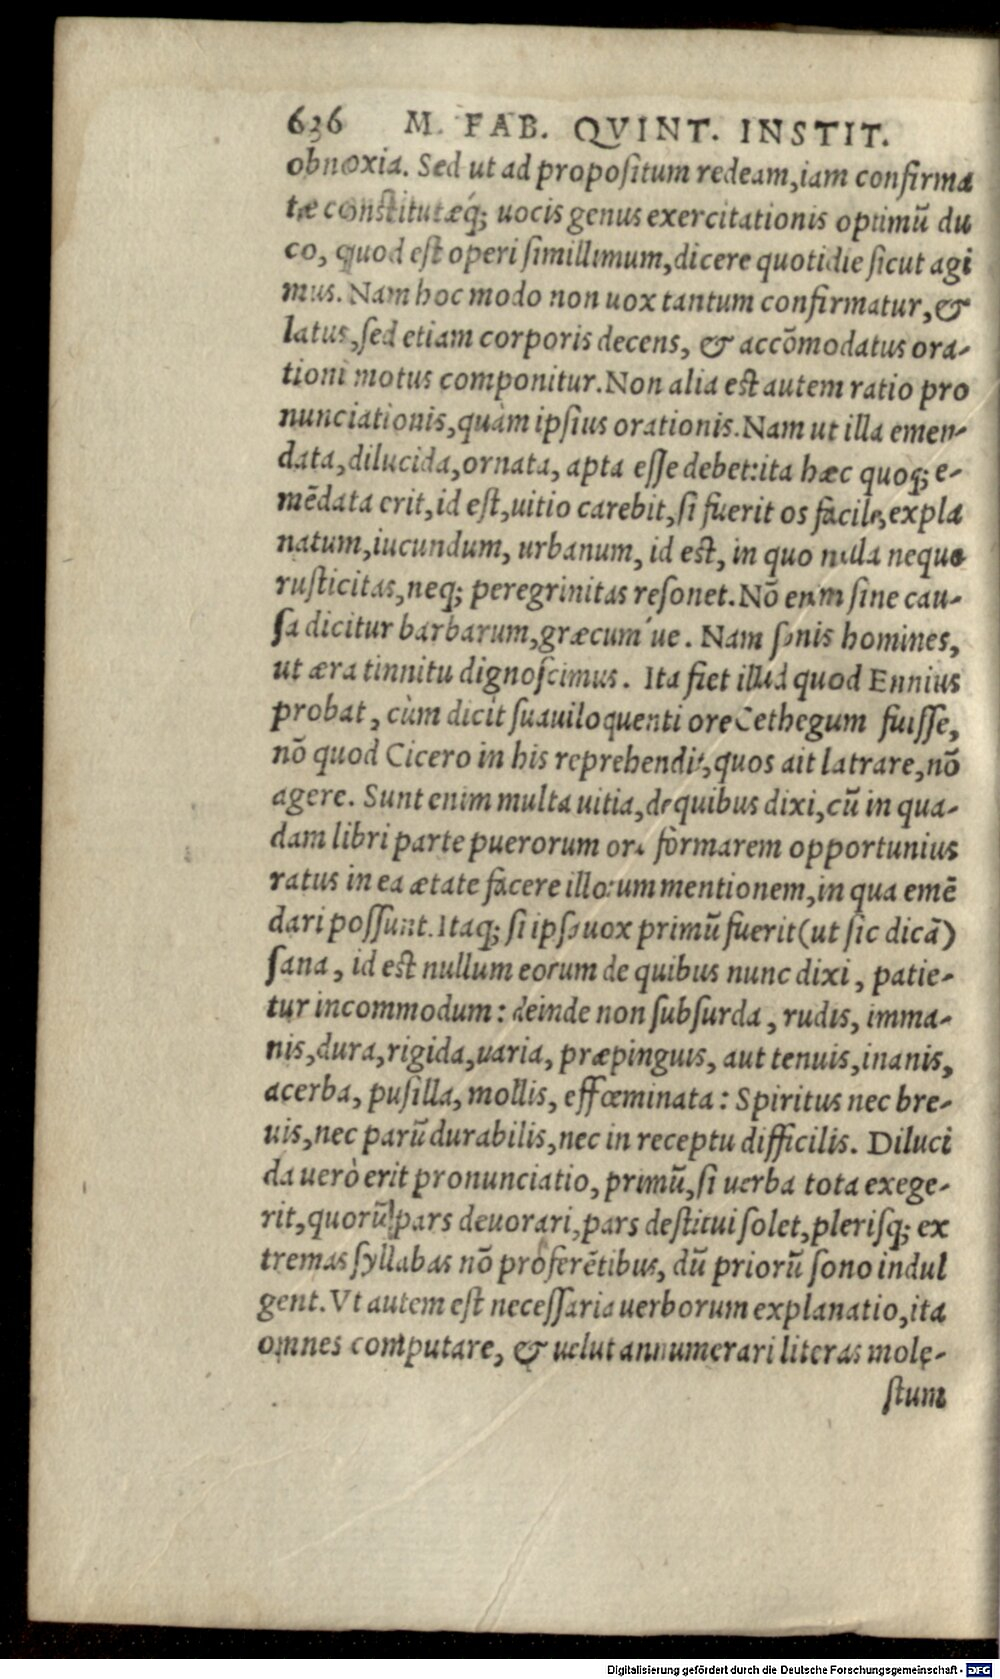 636 M. FAB. QVINT. INSTIT.
obnoxia. Sed ut ad propositum redeam, iam confirma
tæ constitutæq́; uocis genus exercitationis optimũ du
co, quod est operi simillimum, dicere quotidie sicut agi
mus. Nam hoc modo non uox tantum confirmatur, &
latus, sed etiam corporis decens, & accõmodatus ora-
tioni motus componitur. Non alia est autem ratio pro
nunciationis, quàm ipsius orationis. Nam ut illa emen-
data, dilucida, ornata, apta esse debet: ita hæc quoq; e-
mẽdata erit, id est, uitio carebit, si fuerit os facile, expla
natum, iucundum, urbanum, id est, in quo nulla neque
rusticitas, neq; peregrinitas resonet. Nõ enim sine cau-
sa dicitur barbarum, græcum´ue. Nam sonis homines,
ut æra tinnitu dignoscimus. Ita fiet illud quod Ennius
probat, cùm dicit suauiloquenti ore Cethegum fuisse,
nõ quod Cicero in his reprehendit, quos ait latrare, nõ
agere. Sunt enim multa uitia, de quibus dixi, cũ in qua-
dam libri parte puerorum ora formarem opportunius
ratus in ea ætate facere illorum mentionem, in qua emẽ
dari possunt. Itaq; si ipsa uox primũ fuerit (ut sic dicã)
sana, id est nullum eorum de quibus nunc dixi, patie-
tur incommodum: deinde non subsurda, rudis, imma-
nis, dura, rigida, uaria, præpinguis, aut tenuis, inanis,
acerba, pusilla, mollis, effœminata: Spiritus nec bre-
uis, nec parũ durabilis, nec in receptu difficilis. Diluci
da uerò erit pronunciatio, primũ, si uerba tota exege-
rit, quorũ pars deuorari, pars destitui solet, plerisq; ex
tremas syllabas nõ proferẽtibus, dũ priorũ sono indul
gent. Vt autem est necessaria uerborum explanatio, ita
omnes computare, & uelut annumerari literas mole-
stum
Digitalisierung gefördert durch die Deutsche Forschungsgemeinschaft - DFG